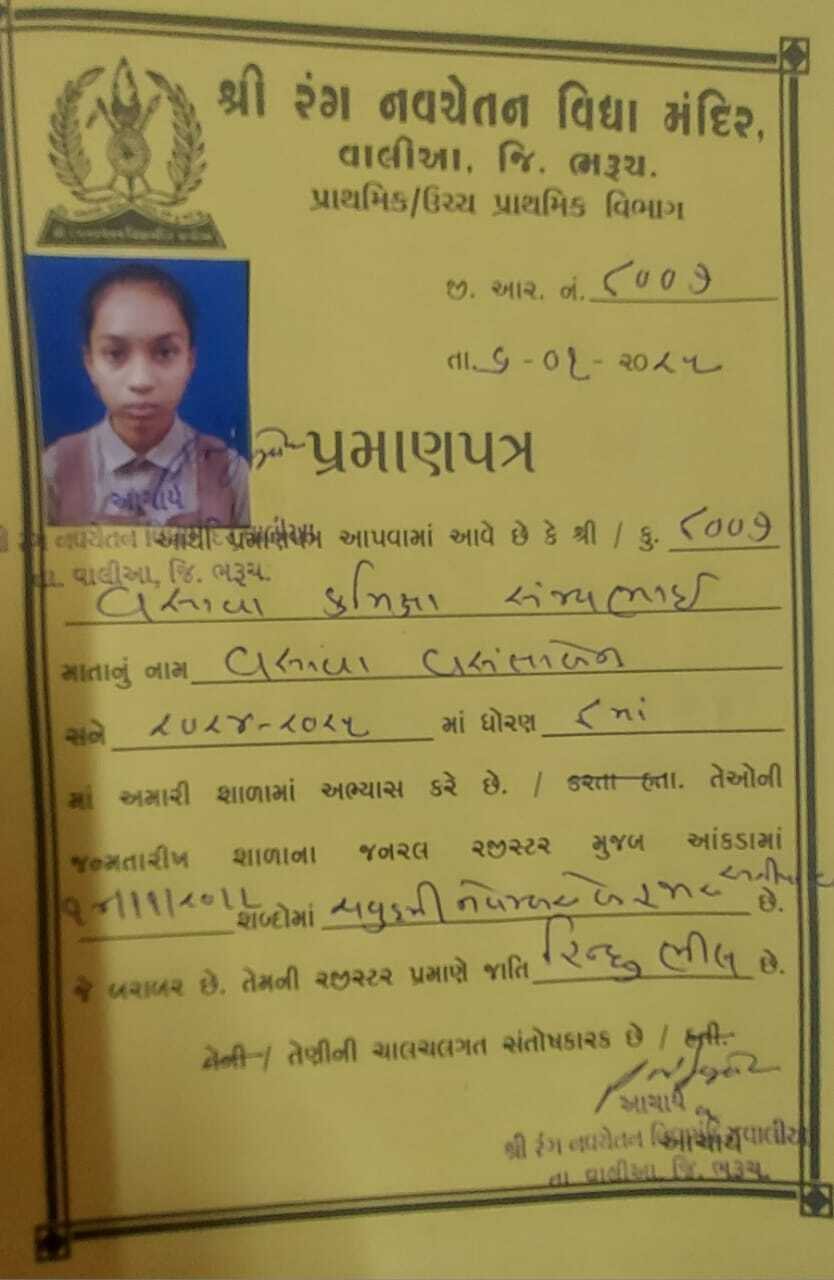 શ્રી રંગ નવચેતન વિદ્યા મંદિર,
વાલીઆ, જિ. ભરૂચ.
પ્રાથમિક/ઉચ્ચ પ્રાથમિક વિભાગ
જી. આર. નં. ૮૦૦૭
તા. ૬-૦૧-૨૦૨૫
પ્રમાણપત્ર
આચાર્ય
આથી પ્રમાણપત્ર આપવામાં આવે છે કે શ્રી / કુ. ૮૦૦૭
તા. વાલીઆ, જિ. ભરૂચ.
વસાવા સંજયભાઈ
માતાનું નામ વસાવા
સને ૨૦૨૪-૨૦૨૫ માં ધોરણ ૮ માં
માં અમારી શાળામાં અભ્યાસ કરે છે. / કરતા હતા. તેઓની
જન્મતારીખ શાળાના જનરલ રજીસ્ટર મુજબ આંકડામાં
શબ્દોમાં નવેમ્બર બે હજાર છે.
જે બરાબર છે. તેમની રજીસ્ટર પ્રમાણે જાતિ હિન્દુ ભીલ છે.
તેની / તેણીની ચાલચલગત સંતોષકારક છે / હતી.
આચાર્ય
શ્રી રંગ નવચેતન વાલીઆ
તા. વાલીઆ, જિ. ભરૂચ.